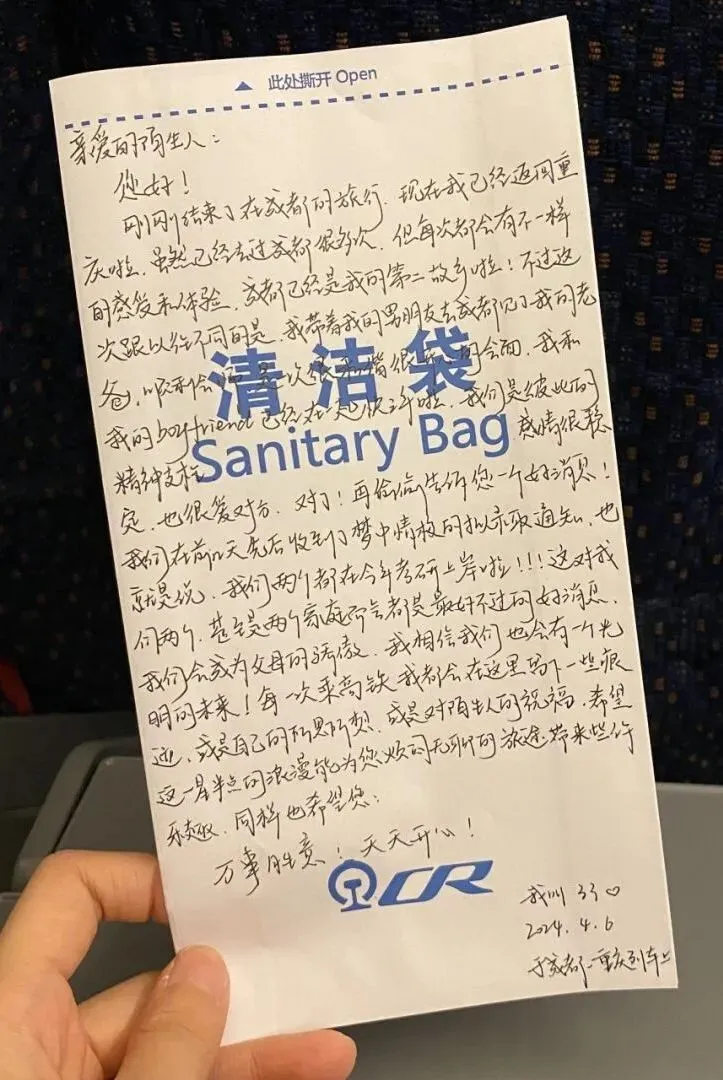 此处撕开 Open
亲爱的陌生人：
您好！
刚刚结束了在成都的旅行，现在我已经返回重
庆啦，虽然已经去过成都很多次，但每次都会有不一样
的感受和体验，成都已经是我的第二故乡啦！不过这
次跟以往不同的是，我带着我的男朋友去成都见了我的老
爸，顺利会面，是一次很和谐很 的会面，我和
我的boyfriend已经在一起 啦，我们是彼此的
精神支柱 感情很稳
定，也很爱对方，对了！再给您告诉您一个好消息！
我们在前几天先后收到了梦中情校的拟录取通知，也
就是说，我们两个都在今年考研上岸啦！！！这对我
们两个，甚至是两个家庭而言都是最好不过的好消息，
我们会成为父母的骄傲，我相信我们也会有一个光
明的未来！每一次乘高铁我都会在这里留下一些痕
迹，或是自己的所思所想，或是对陌生人的祝福，希望
这一星半点的浪漫能为您烦闷无聊的旅途带来些许
乐趣，同样也希望您：
万事胜意！天天开心！
清洁袋
Sanitary Bag
CR
我叫 ♡
2024.4.6
于成都-重庆列车上